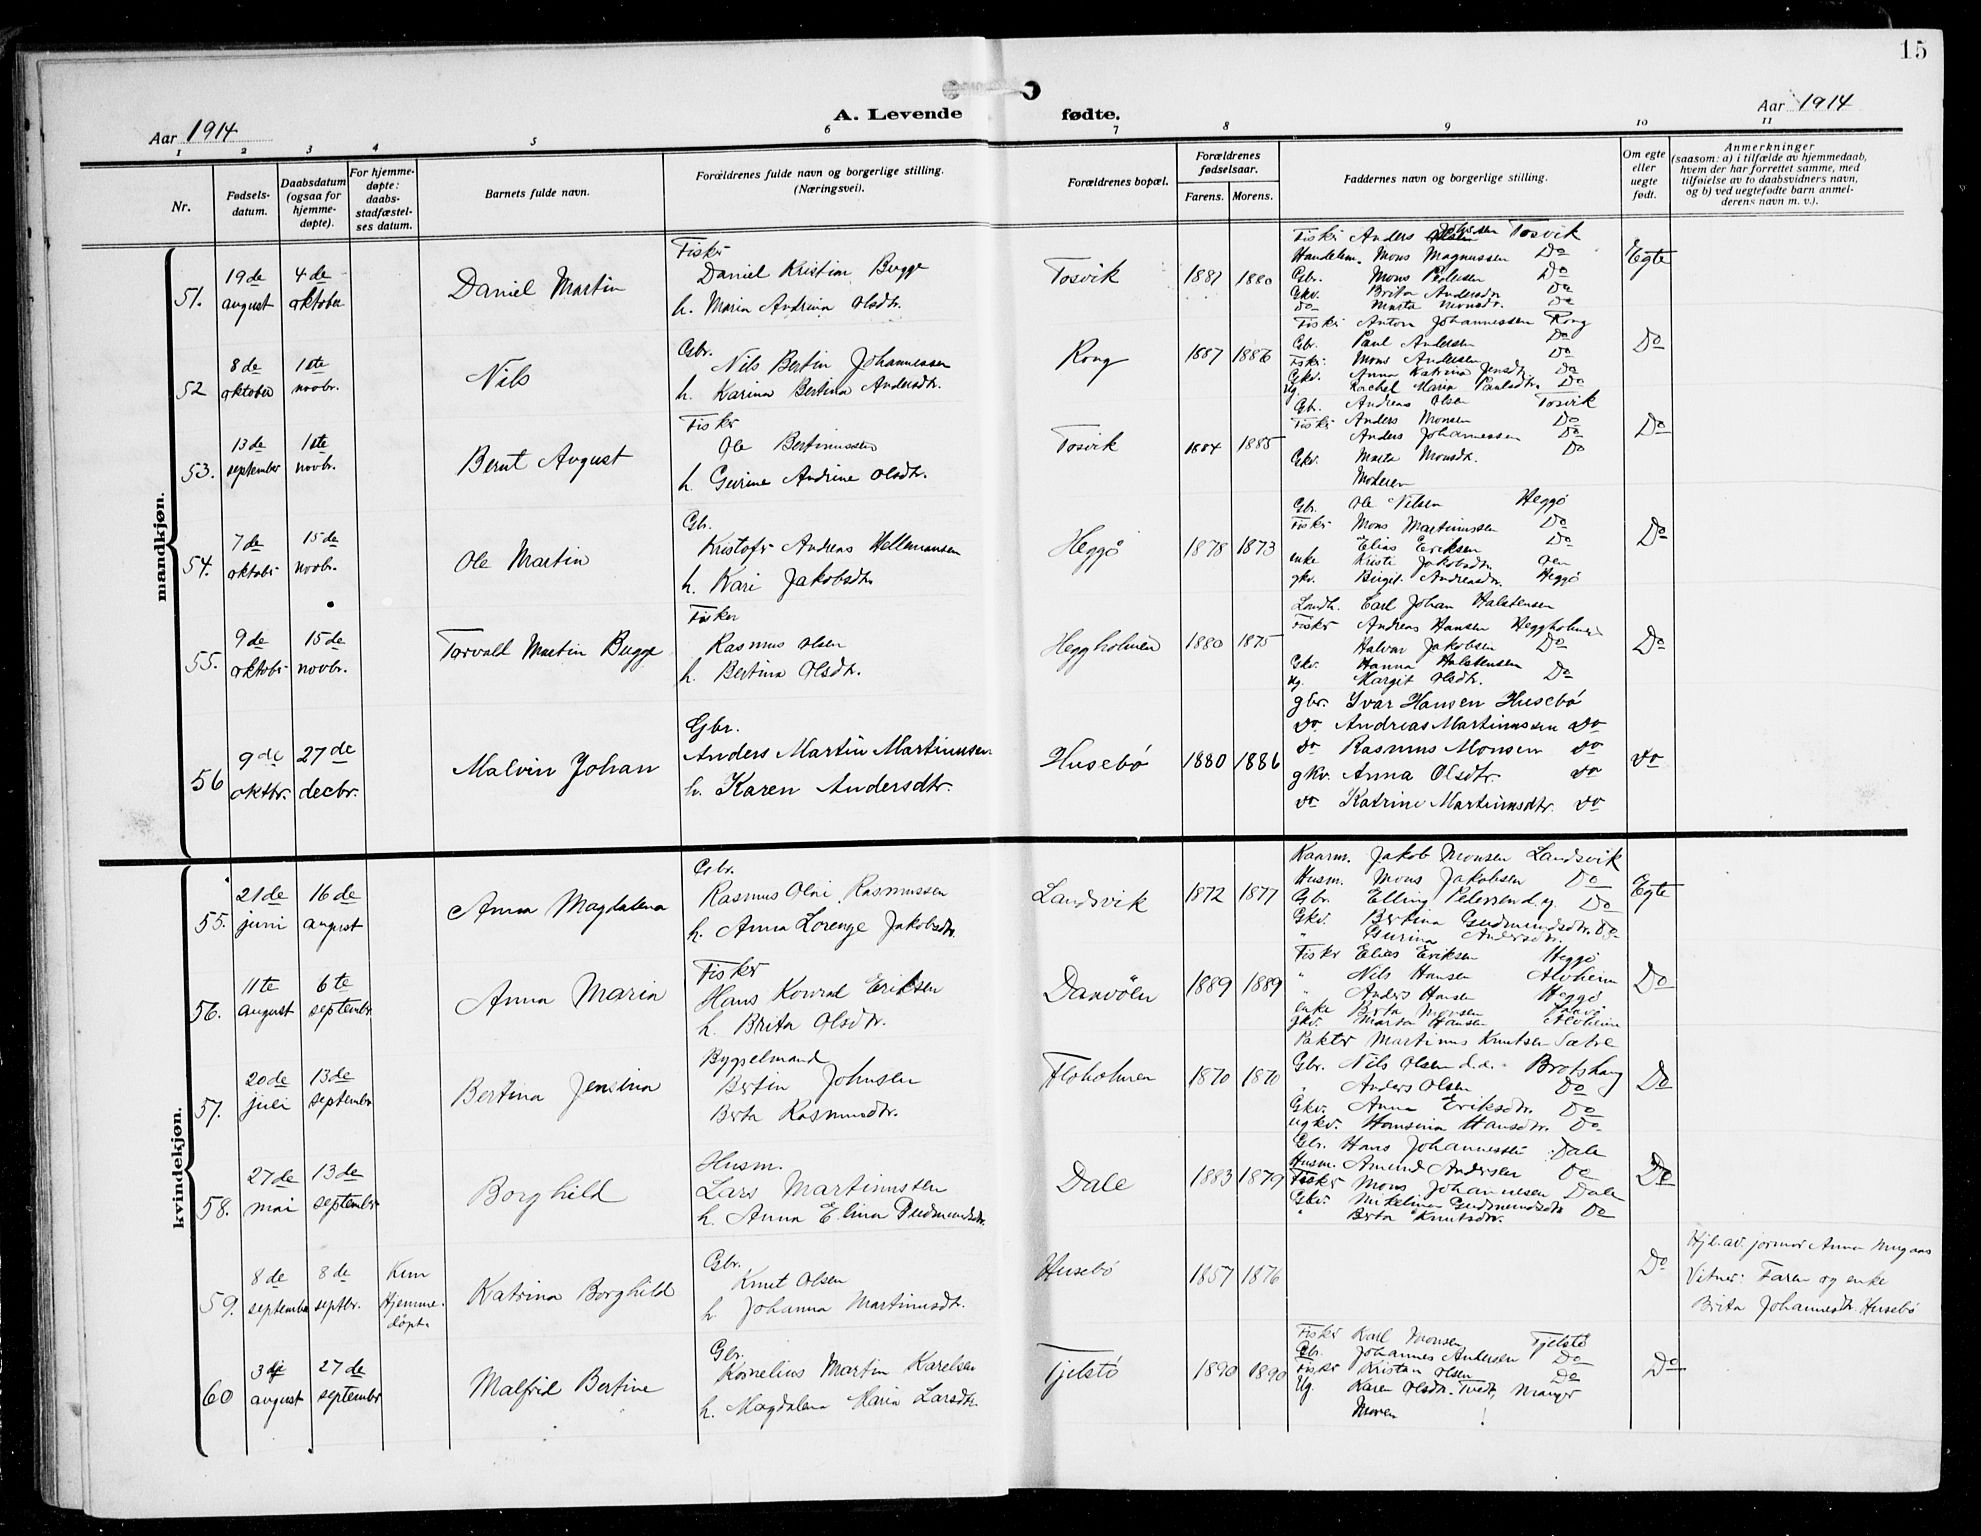 15
A. Levende fødte.
Aar 1914
Aar 1914
1 2 3 4 5 6 7 8 9 10 11
Nr.
Fødsels-
datum.
Daabsdatum
(ogsaa for
hjemme-
døpte).
For hjemme-
døpte:
daabs-
stadfæstel-
ses datum.
Barnets fulde navn.
Forældrenes fulde navn og borgerlige stilling.
(Næringsvei).
Forældrenes bopæl.
Forældrenes
fødselsaar.
Farens. Morens.
Faddernes navn og borgerlige stilling.
Om egte
eller
uegte
født.
Anmerkninger
(saasom: a) i tilfælde av hjemmedaab,
hvem der har forrettet samme, med
tilføielse av to daabsvidners navn,
og b) ved uegtefødte barn anmel-
derens navn m. v.).
mandkjøn.
51.
19de
august
4de
oktober
Daniel Martin
Fisker
Daniel Kristian Bugge
h. Maria Andrina Olsdtr.
Tosvik
1881 1880
Fisker Anders Johnsen Tosvik
Handelsm. Mons Magnussen Do
Gbr. Mons Pedersen Do
Gkv. Brita Andersdtr Do
Do Marta Monsdtr. Do
Egte
52
8de
oktober
1ste
novbr.
Nils
Gbr.
Nils Bertin Johannessen
h. Karina Bertina Andersdtr.
Rong
1887 1886
Fisker Anton Johannessen Rong
Gbr. Paul Andersen Do
Fisker Mons Andersen Do
Gkv. Anna Katrina Jensdtr. Do
Ug. Rachel Maria Paulsdtr. Do
Do
53.
13de
september
1ste
novbr.
Bernt August
Fisker
Ole Bertinussen
h. Gurine Andrine Olsdtr.
Tosvik
1884 1885
Gbr. Andreas Olsen Tosvik
Fisker Anders Monsen Do
Anders Johannessen Do
Gkv. Marta Monsdtr. Do
Moderen
Do
54.
7de
oktobr
15de
novbr.
Ole Martin
Gbr.
Kristofer Andreas Hellemansen
h. Kari Jakobsdtr
Heggö
1878 1873
Gbr. Ole Nilsen Heggö
Fisker Mons Martinussen Do
Elias Eriksen Do
enke Kristi Jakobsdtr Oen
gkv. Birgit Andreasdtr. Heggö
Do
55.
9de
oktobr
15de
novbr.
Torvald Martin Bugge
Fisker
Rasmus Olsen
h. Bertina Olsdtr.
Heggholmen
1880 1875
Landh. Carl Johan Halstensen
Fisker Andreas Hansen Heggholmen
Halvar Jakobsen Do
Gkv. Hanna Halstensen
Ug. Margit Olsdtr. Do
Do
56
9de
oktbr.
27de
decbr.
Malvin Johan
Gbr.
Anders Martin Martinusen
h. Karen Andersdtr.
Husebø
1880 1886
gbr. Ivar Hansen Husebø
do Andreas Martinussen do
do Rasmus Monsen do
gkv. Anna Olsdtr. do
do Katrine Martinusdtr. do
do
kvindekjøn.
55.
21de
juni
16de
august
Anna Magdalena
Gbr.
Rasmus Olai Rasmussen
h. Anna Lorenze Jakobsdtr.
Landsvik
1872 1877
Kaarm. Jakob Monsen Landsvik
Husm. Mons Jakobsen Do
Gbr. Elling Pedersen d.y. Do
Gkv. Bertina Gudmundsdtr. Do
" Gurina Andersdtr.
Egte
56.
11te
august
6te
septembr
Anna Maria
Fisker
Hans Konrad Eriksen
h. Brita Olsdtr.
Danvöen
1889 1889
Fisker Elias Eriksen Heggö
" Nils Hansen Alvheim
" Anders Hansen Heggö
enke Berta Monsen
gkv. Marta Hansen Alvheim
Do
57.
20de
juli
13de
septembr
Bertina Jensina
Bygselmand
Bertin Johnsen
Berta Rasmusdtr.
Floholmen
1870 1870
Pakter Martinus Knutsen Sætre
Gbr. Nils Olsen d.e. Brotshaug
" Anders Olsen Do
Gkv. Anna Eriksdtr. Do
ugkv. Hansina Hansdtr. Do
Do
58.
27de
mai
13de
septembr
Borghild
Husm.
Lars Martinussen
h. Anna Elina Gudmundsdtr.
Dale
1883 1879
Gbr. Hans Johannessen Dale
Husm. Amund Andersen Do
Fisker Mons Johannesen Dale
Gkv. Mikeline Gudmundsdtr Do
" Berta Knutsdtr.
Do
59.
8de
september
8de
septbr.
Kun
Hjemme-
døpt
Katrina Borghild
Gbr.
Knut Olsen
h. Johanna Martinusdtr.
Husebö
1857 1876
Do
Hjd. av jormor Anna Mugaas
Vitner: Faren og enke
Brita Johannesdtr. Husebö
60
3die
august
27de
septembr
Malfrid Bertine
Gbr.
Kornelius Martin Karelsen
h. Magdalena Maria Larsdtr.
Tjelstö
1890 1890
Fisker Karl Monsen Tjelstö
Gbr. Johannes Andersen Do
Fisker Kristan Olsen Do
Ug. Karen Olsdtr. Tvedt, Manger
Moren
Do